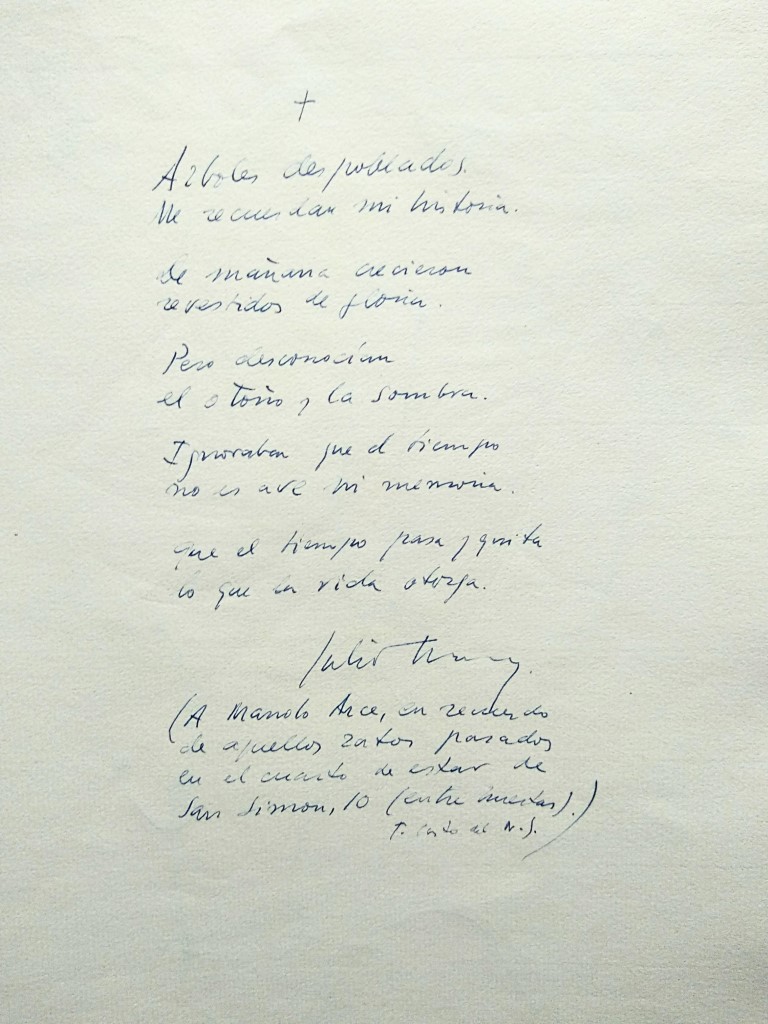 +
Arboles despoblados.
Me recuerdan mi historia.
De mañana crecieron
revestidos de gloria.
Pero desconocían
el otoño y la sombra.
Ignoraban que el tiempo
no es ave ni memoria.
que el tiempo pasa y quita
lo que en vida otorga.
Julio
(A Manolo Arce, en recuerdo
de aquellos ratos pasados
en el cuarto de estar de
San Simon, 10 (entre).)
N.S.